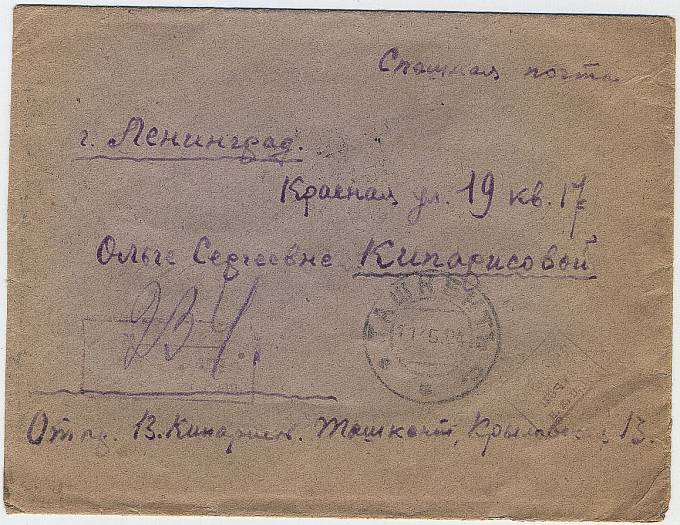 Спешная почта
г. Ленинград.
Красная ул. 19 кв. 17
Ольге Сергеевне Кипарисовой
ТАШКЕНТ
Отпр. В. Кипарисов. Ташкент, 13.